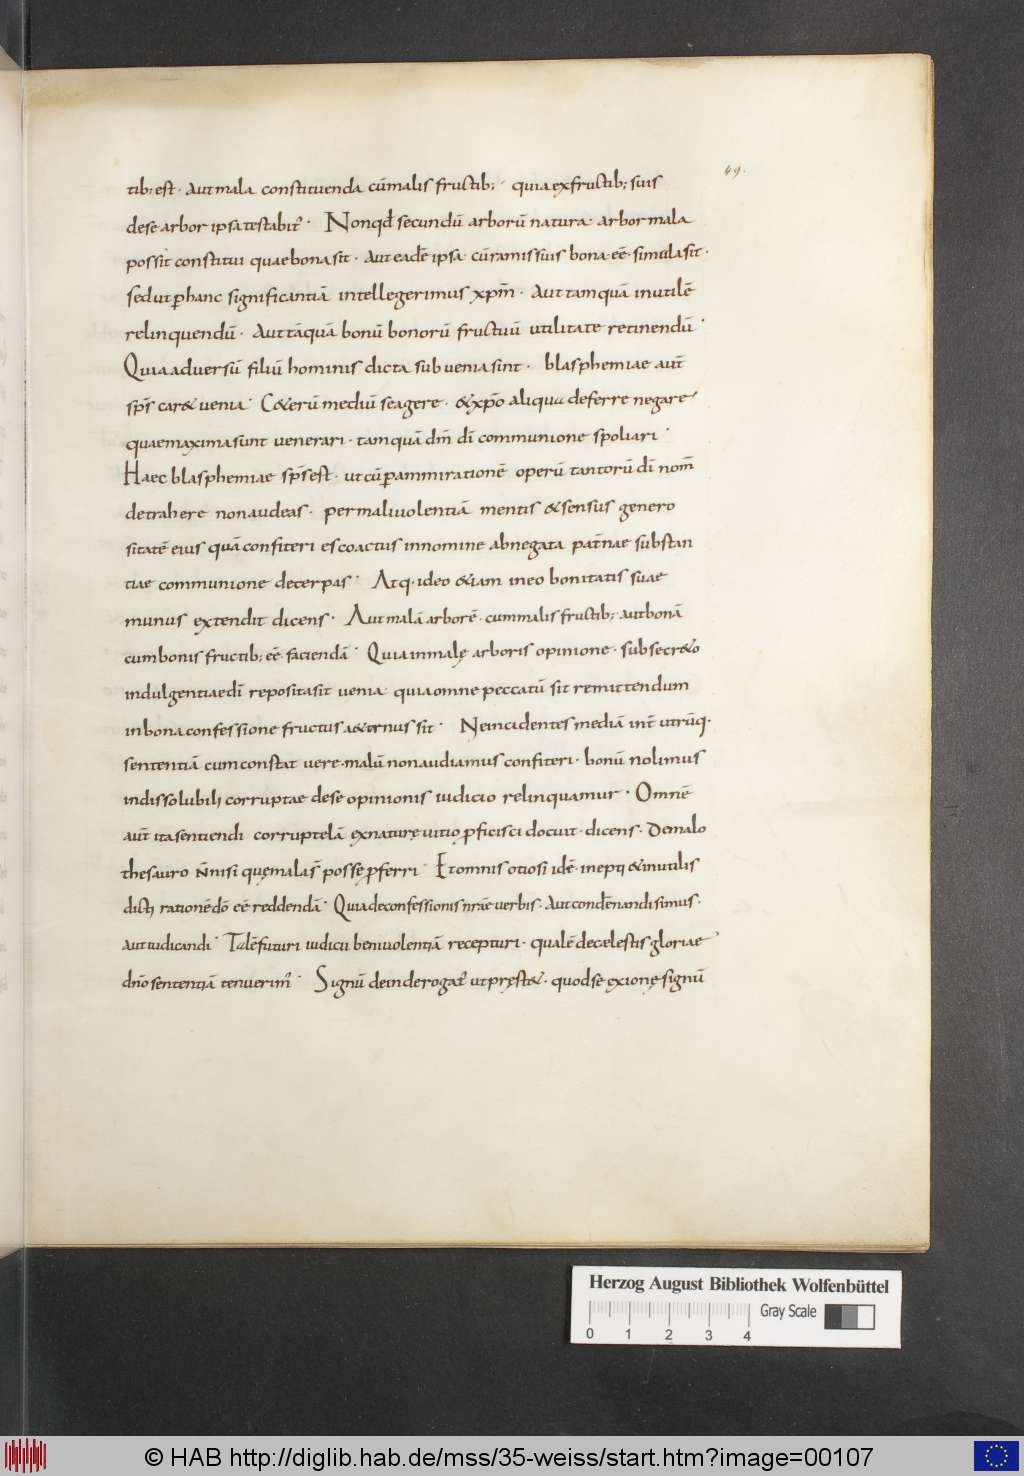 49.
tib; est · Aut mala constituenda cū malis fructib; · quia ex fructib; suis
de se arbor ipsa testabit᷒ · Non qđ secundū arborū natura · arbor mala
possit constitui quae bona sit · Aut eadē ipsa cū ramis suis bona eē · simul a sit ·
sed ut ꝑ hanc significantiā intellegerimus xp̄m · Aut tamquā inutilē
relinquendū · Aut tāquā bonū bonorū fructuū utilitate retinendū ·
Quia adversū filiū hominis dicta sub venia sint · blasphemiae aut̄
sp̄s car& venia · C&erū mediū se agere · & xp̄o aliqua deferre negare
quae maxima sunt venerari · tamquā dm̄ dī communione spoliari ·
Haec blasphemiae sp̄s est · ut cū ꝑ ammirationē operū tantorū dī nom̄
detrahere non audeas · per malivolentiā mentis & sensus genero
sitatē eius quā confiteri es coactus in nomine abnegata pat̄nae substan
tiae communione decerpas · Atq · ideo &iam in eo bonitatis suae
munus extendit dicens · Aut malā arborē · cum malis fructib; aut bonā
cum bonis fructib; eē faciendā · Quia in malę arboris opinione · sub secr&o
indulgentiae dī reposita sit venia quia omne peccatū sit remittendum
in bona confessione fructus a&ernus sit · Ne incidentes mediā int̄ utrūq ·
sententiā cum constat vere · malū non audiamus confiteri · bonū nolimus
indissolubili corruptae de se opinionis iudicio relinquamur · Omnē
aut̄ ita sentiendi corruptelā ex naturę vitio ꝓficisci docuit · dicens · De malo
thesauro n̄ nisi quę mala s̄ posse ꝓferri · Et omnis otiosi idē · inepti & inutilis
dicti rationē dō eē reddendā · Quia de confessionis nr̄ae verbis · Aut condēnandi simus ·
aut iudicandi · Talē futuri iudicii benivolentiā recepturi · qualē de cælestis gloriae
dn̄o sententiā tenuerim᷒ · Signū dein derogat᷒ ut pręst& · quod se ex ionę signū
Herzog August Bibliothek Wolfenbüttel
Gray Scale
0 1 2 3 4
© HAB http://diglib.hab.de/mss/35-weiss/start.htm?image=00107